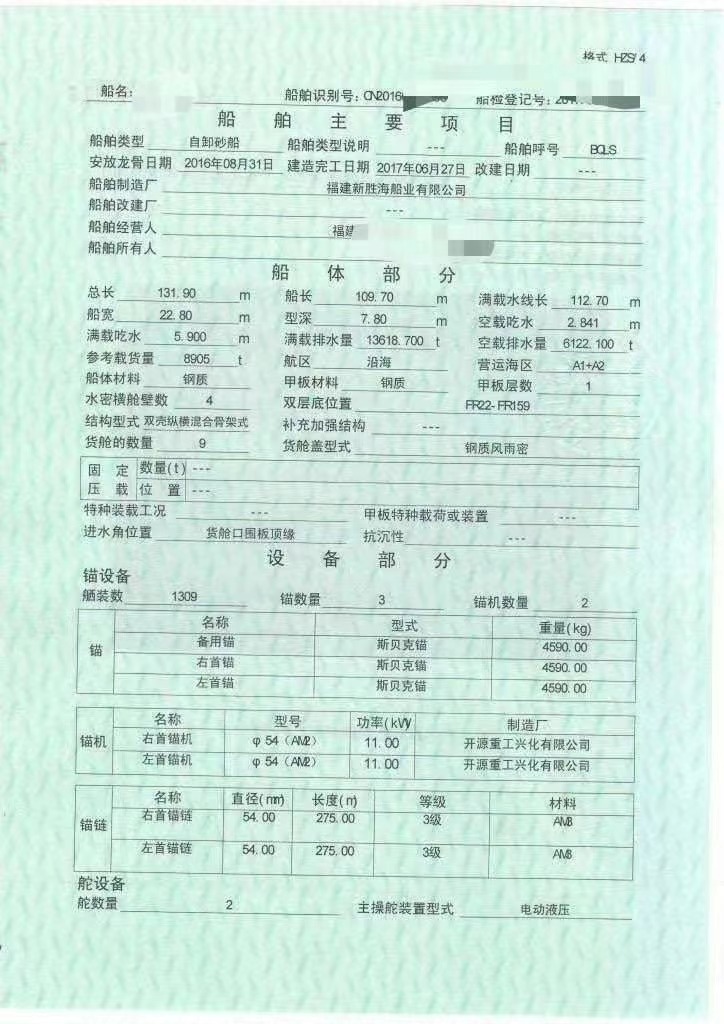 格式 HZS/4
船名: 船舶识别号: CN2016 船检登记号: 201
船舶主要项目
船舶类型 自卸砂船 船舶类型说明 --- 船舶呼号 BQLS
安放龙骨日期 2016年08月31日 建造完工日期 2017年06月27日 改建日期 ---
船舶制造厂 福建新胜海船业有限公司
船舶改建厂 ---
船舶经营人 福建
船舶所有人
船体部分
总长 131.90 m 船长 109.70 m 满载水线长 112.70 m
船宽 22.80 m 型深 7.80 m 空载吃水 2.841 m
满载吃水 5.900 m 满载排水量 13618.700 t 空载排水量 6122.100 t
参考载货量 8905 t 航区 沿海 营运海区 A1+A2
船体材料 钢质 甲板材料 钢质 甲板层数 1
水密横舱壁数 4 双层底位置 FR22-FR159
结构型式 双壳纵横混合骨架式 补充加强结构 ---
货舱的数量 9 货舱盖型式 钢质风雨密
固定压载 数量(t) ---
位置 ---
特种装载工况 --- 甲板特种载荷或装置 ---
进水角位置 货舱口围板顶缘 抗沉性 ---
设备部分
锚设备
舾装数 1309 锚数量 3 锚机数量 2
锚 名称 型式 重量(kg)
备用锚 斯贝克锚 4590.00
右首锚 斯贝克锚 4590.00
左首锚 斯贝克锚 4590.00
锚机 名称 型号 功率(kW) 制造厂
右首锚机 φ54（AM2） 11.00 开源重工兴化有限公司
左首锚机 φ54（AM2） 11.00 开源重工兴化有限公司
锚链 名称 直径(mm) 长度(m) 等级 材料
右首锚链 54.00 275.00 3级 AM3
左首锚链 54.00 275.00 3级 AM3
舵设备
舵数量 2 主操舵装置型式 电动液压